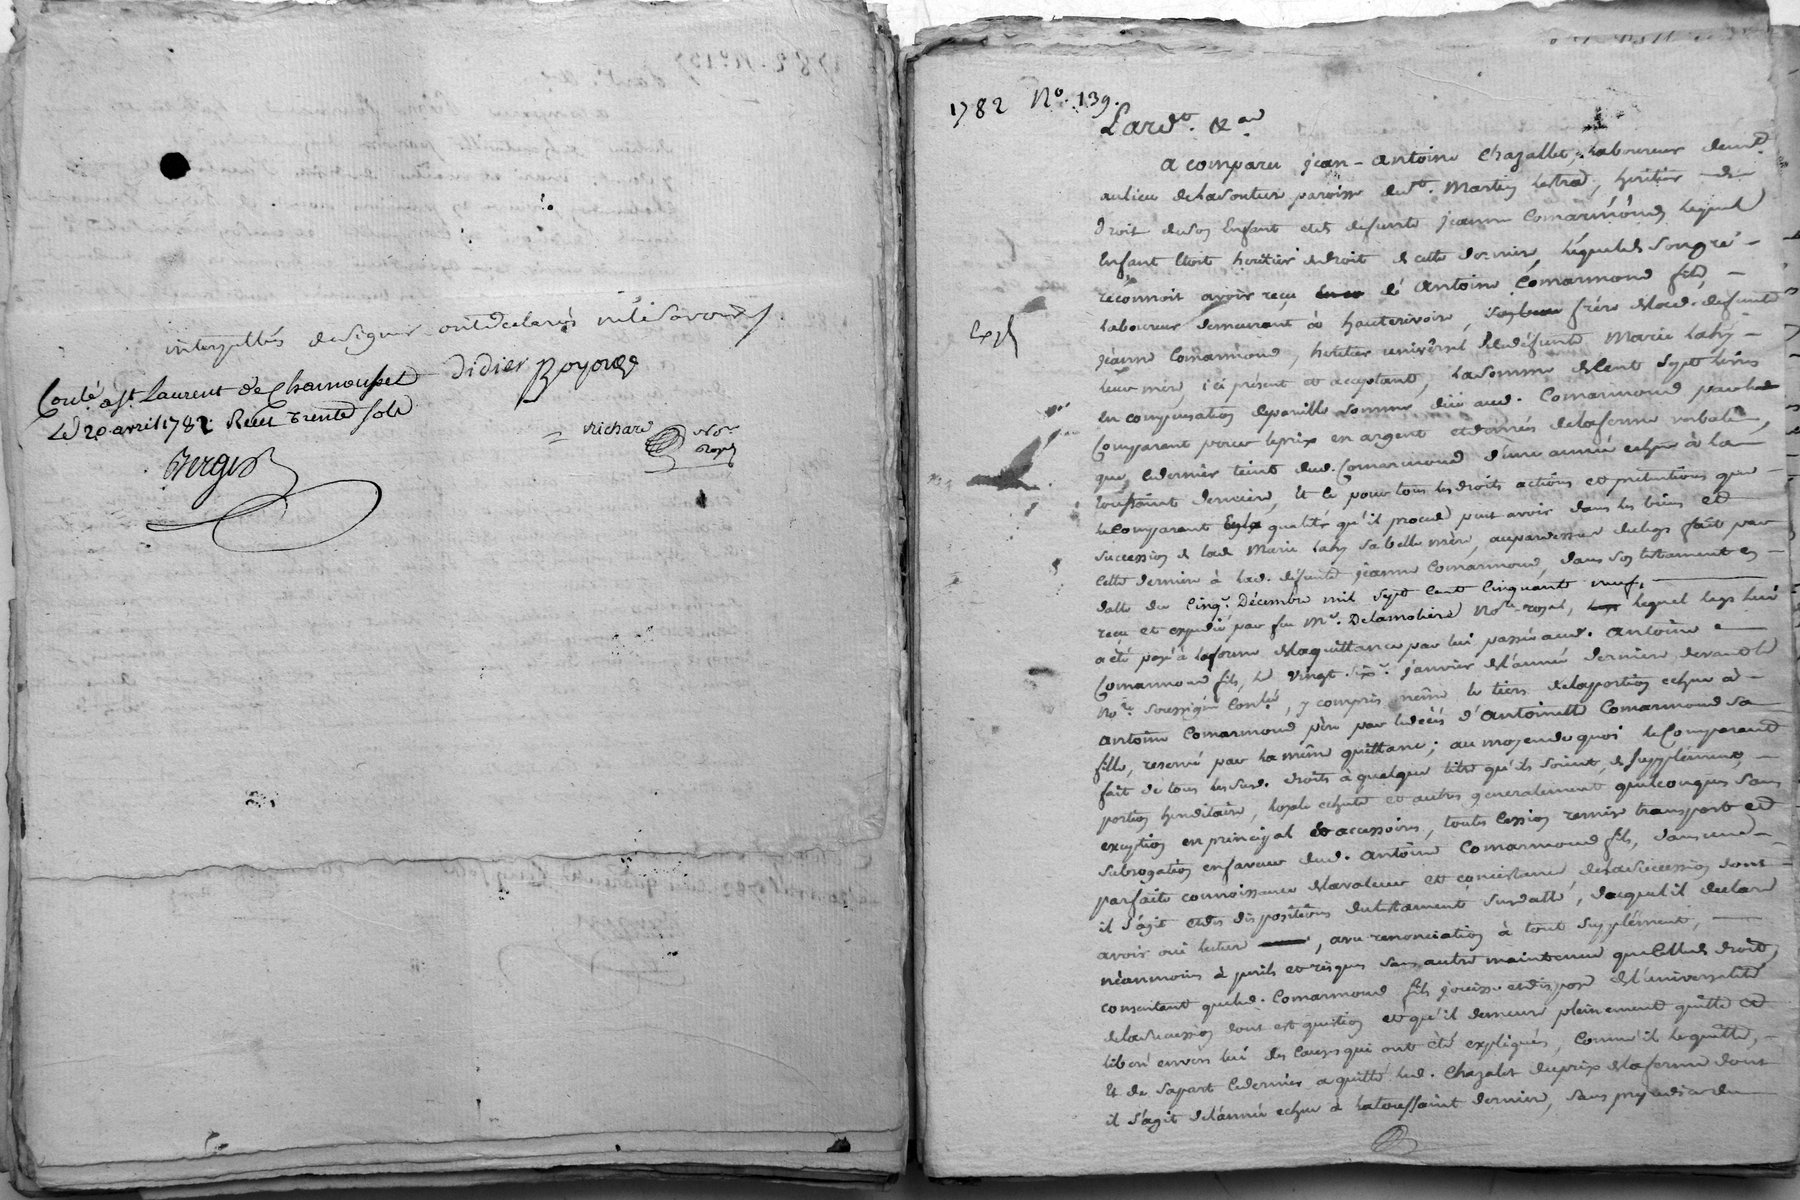 interpellés de signer ont declarés ne le savoir /.
Didier Boyorée
Conlé. à St. Laurent de Chamousset
Le 20 avril 1782. Reçu trente sols
richard Nore Royal
Bergier
1782 No. 139.
Pardt. &a.
a comparu jean-antoine Chazallet, Laboureur demt.
au lieu de la paroisse de st. Martin Lestra, heritier de
droit de son Enfant et de defunte jeanne Comarmond, lequel
Enfant etoit heritier de droit de cette derniere, lequel de son gré
reconnoit avoir reçu de antoine Comarmond fils,
Laboureur demeurant à hauterivoire, frère de lad. defunte
jeanne Comarmond, heritier universel de defunte Marie
leur mère, ici présent et acceptant, la somme de Cent sept livres
en compensation de pareille somme düe aud. Comarmond par le
Comparant pour le prix en argent et denrées de la ferme verbale,
que ce dernier tient dud. Comarmond d'une année echue à la
toussaint derniere, Et ce pour tous les droits actions et prétentions que
le Comparant En la qualité qu'il procede peut avoir dans les biens et
succession de lad. Marie sa belle mère, au par dessus du legs fait par
cette derniere à lad. défunte jeanne Comarmond, dans son testament en
datte du Cinq. Décembre mil sept Cent Cinquante neuf,
reçu et expedié par feu Me. Delamoliere Nore. royal, lequel legs lui
a été payé à la forme de la quittance par lui passée aud. antoine
Comarmond fils, le Vingt janvier de l'année derniere devant le
Nore. soussigné Conlé., y compris même le tiers de la portion echue à
antoine Comarmond père par le décès d'antoinette Comarmond sa
fille, reservé par la même quittance; au moyen de quoi le Comparant
fait de tous lesd. droits à quelque titre qu'ils soient, de supplément,
portion hereditaire, echute et autres generalement quelconques sans
exception en principal et accessoires, toute Cession remise transport et
subrogation en faveur dud. antoine Comarmond fils, dans une
parfaite connoissance de la valeur et consistance de la succession dont
il s'agit et des dispositions du testament susdatté, duquel il declare
avoir oui lecture, avec renonciation à tout supplément,
néanmoins à perils et risques sans autre maintenue que celle de droit,
consentant que led. Comarmond fils jouisse et dispose de l'universalité
de la succession dont est question et qu'il demeure pleinement quitte et
liberé envers lui des Causes qui ont été expliquées, Comme il le quitte,
Et de sa part ce dernier a quitté led. Chazalet du prix de la ferme dont
il s'agit de l'année echue à la toussaint derniere, sans prejudice du